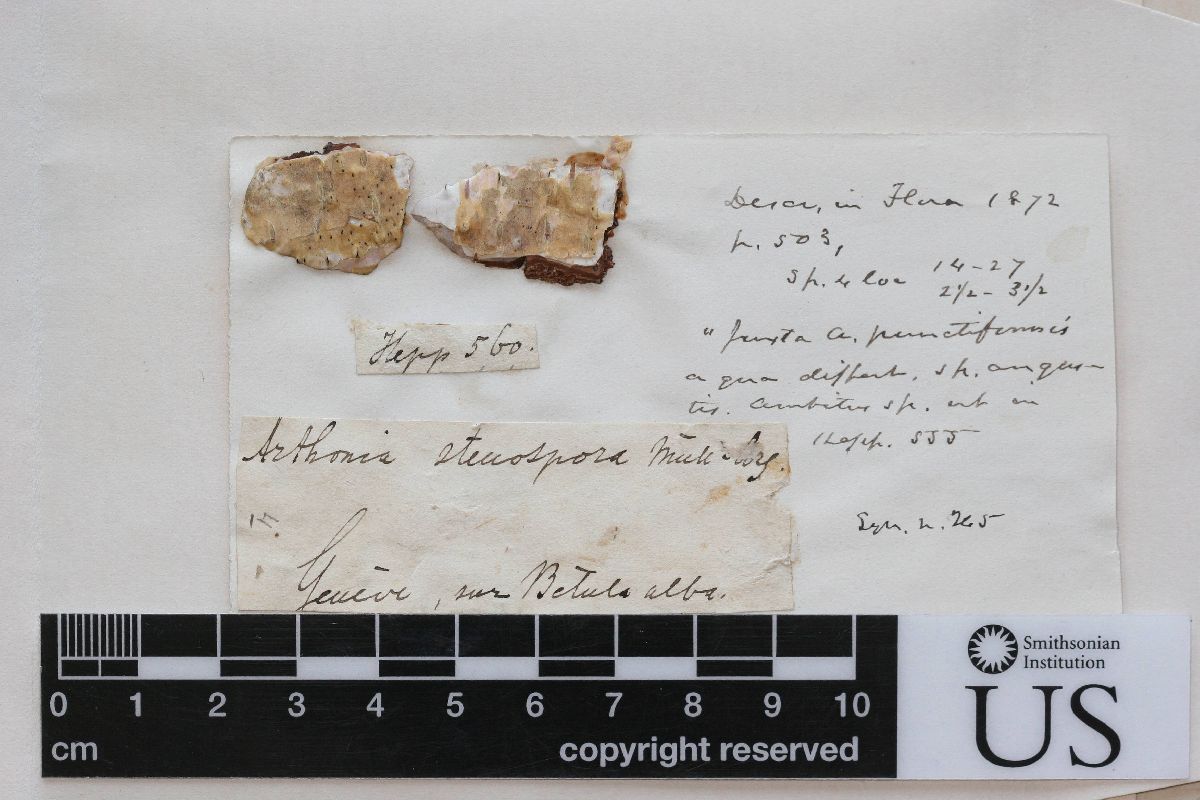 Descr. in Flora 1872
p. 503,
Sp. 4 loc 14-27
2½-3½
"Juxta A. punctiformis
a qua differt. sp. angus-
tis. Ambitus sp. ut in
Hepp. 555
Syn. n.
Hepp 560.
Arthonia stenospora Müll-Arg.
Genève, sur Betula alba.
0 1 2 3 4 5 6 7 8 9 10
cm copyright reserved
Smithsonian
Institution
US